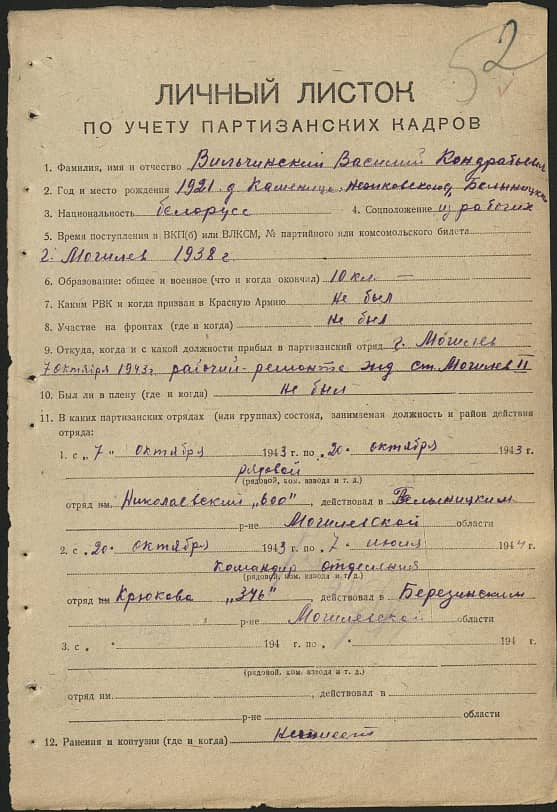 52
ЛИЧНЫЙ ЛИСТОК
ПО УЧЕТУ ПАРТИЗАНСКИХ КАДРОВ
1. Фамилия, имя и отчество Вильчинский Василий Кондратьевич
2. Год и место рождения 1921. д Каменица, Белыницкий
3. Национальность белорусс 4. Соцположение из рабочих
5. Время поступления в ВКП(б) или ВЛКСМ, № партийного или комсомольского билета
г. Могилев 1938 г
6. Образование: общее и военное (что и когда окончил) 10 кл —
7. Каким РВК и когда призван в Красную Армию не был
8. Участие на фронтах (где и когда) не был
9. Откуда, когда и с какой должности прибыл в партизанский отряд г. Могилев
7 октября 1943г рабочий-ремонте жд ст. Могилев II
10. Был ли в плену (где и когда) не был
11. В каких партизанских отрядах (или группах) состоял, занимаемая должность и район действия
отряда:
1. с „7" октября 1943 г. по „20" октября 1943 г.
рядовой
(рядовой, ком. взвода и т. д.)
отряд им. Николаевский „600", действовал в Белыницким
р-не Могилевской области
2. с „20" октября 1943 г. по „7" июля 1944 г.
Командир отделения
(рядовой, ком. взвода и т. д.)
отряд им Крюкова „346", действовал в Березинским
р-не Могилевской области
3. с „ " 194 г. по „ " 194 г.
(рядовой, ком. взвода и т. д.)
отряд им. , действовал в
р-не области
12. Ранения и контузии (где и когда) не имеет